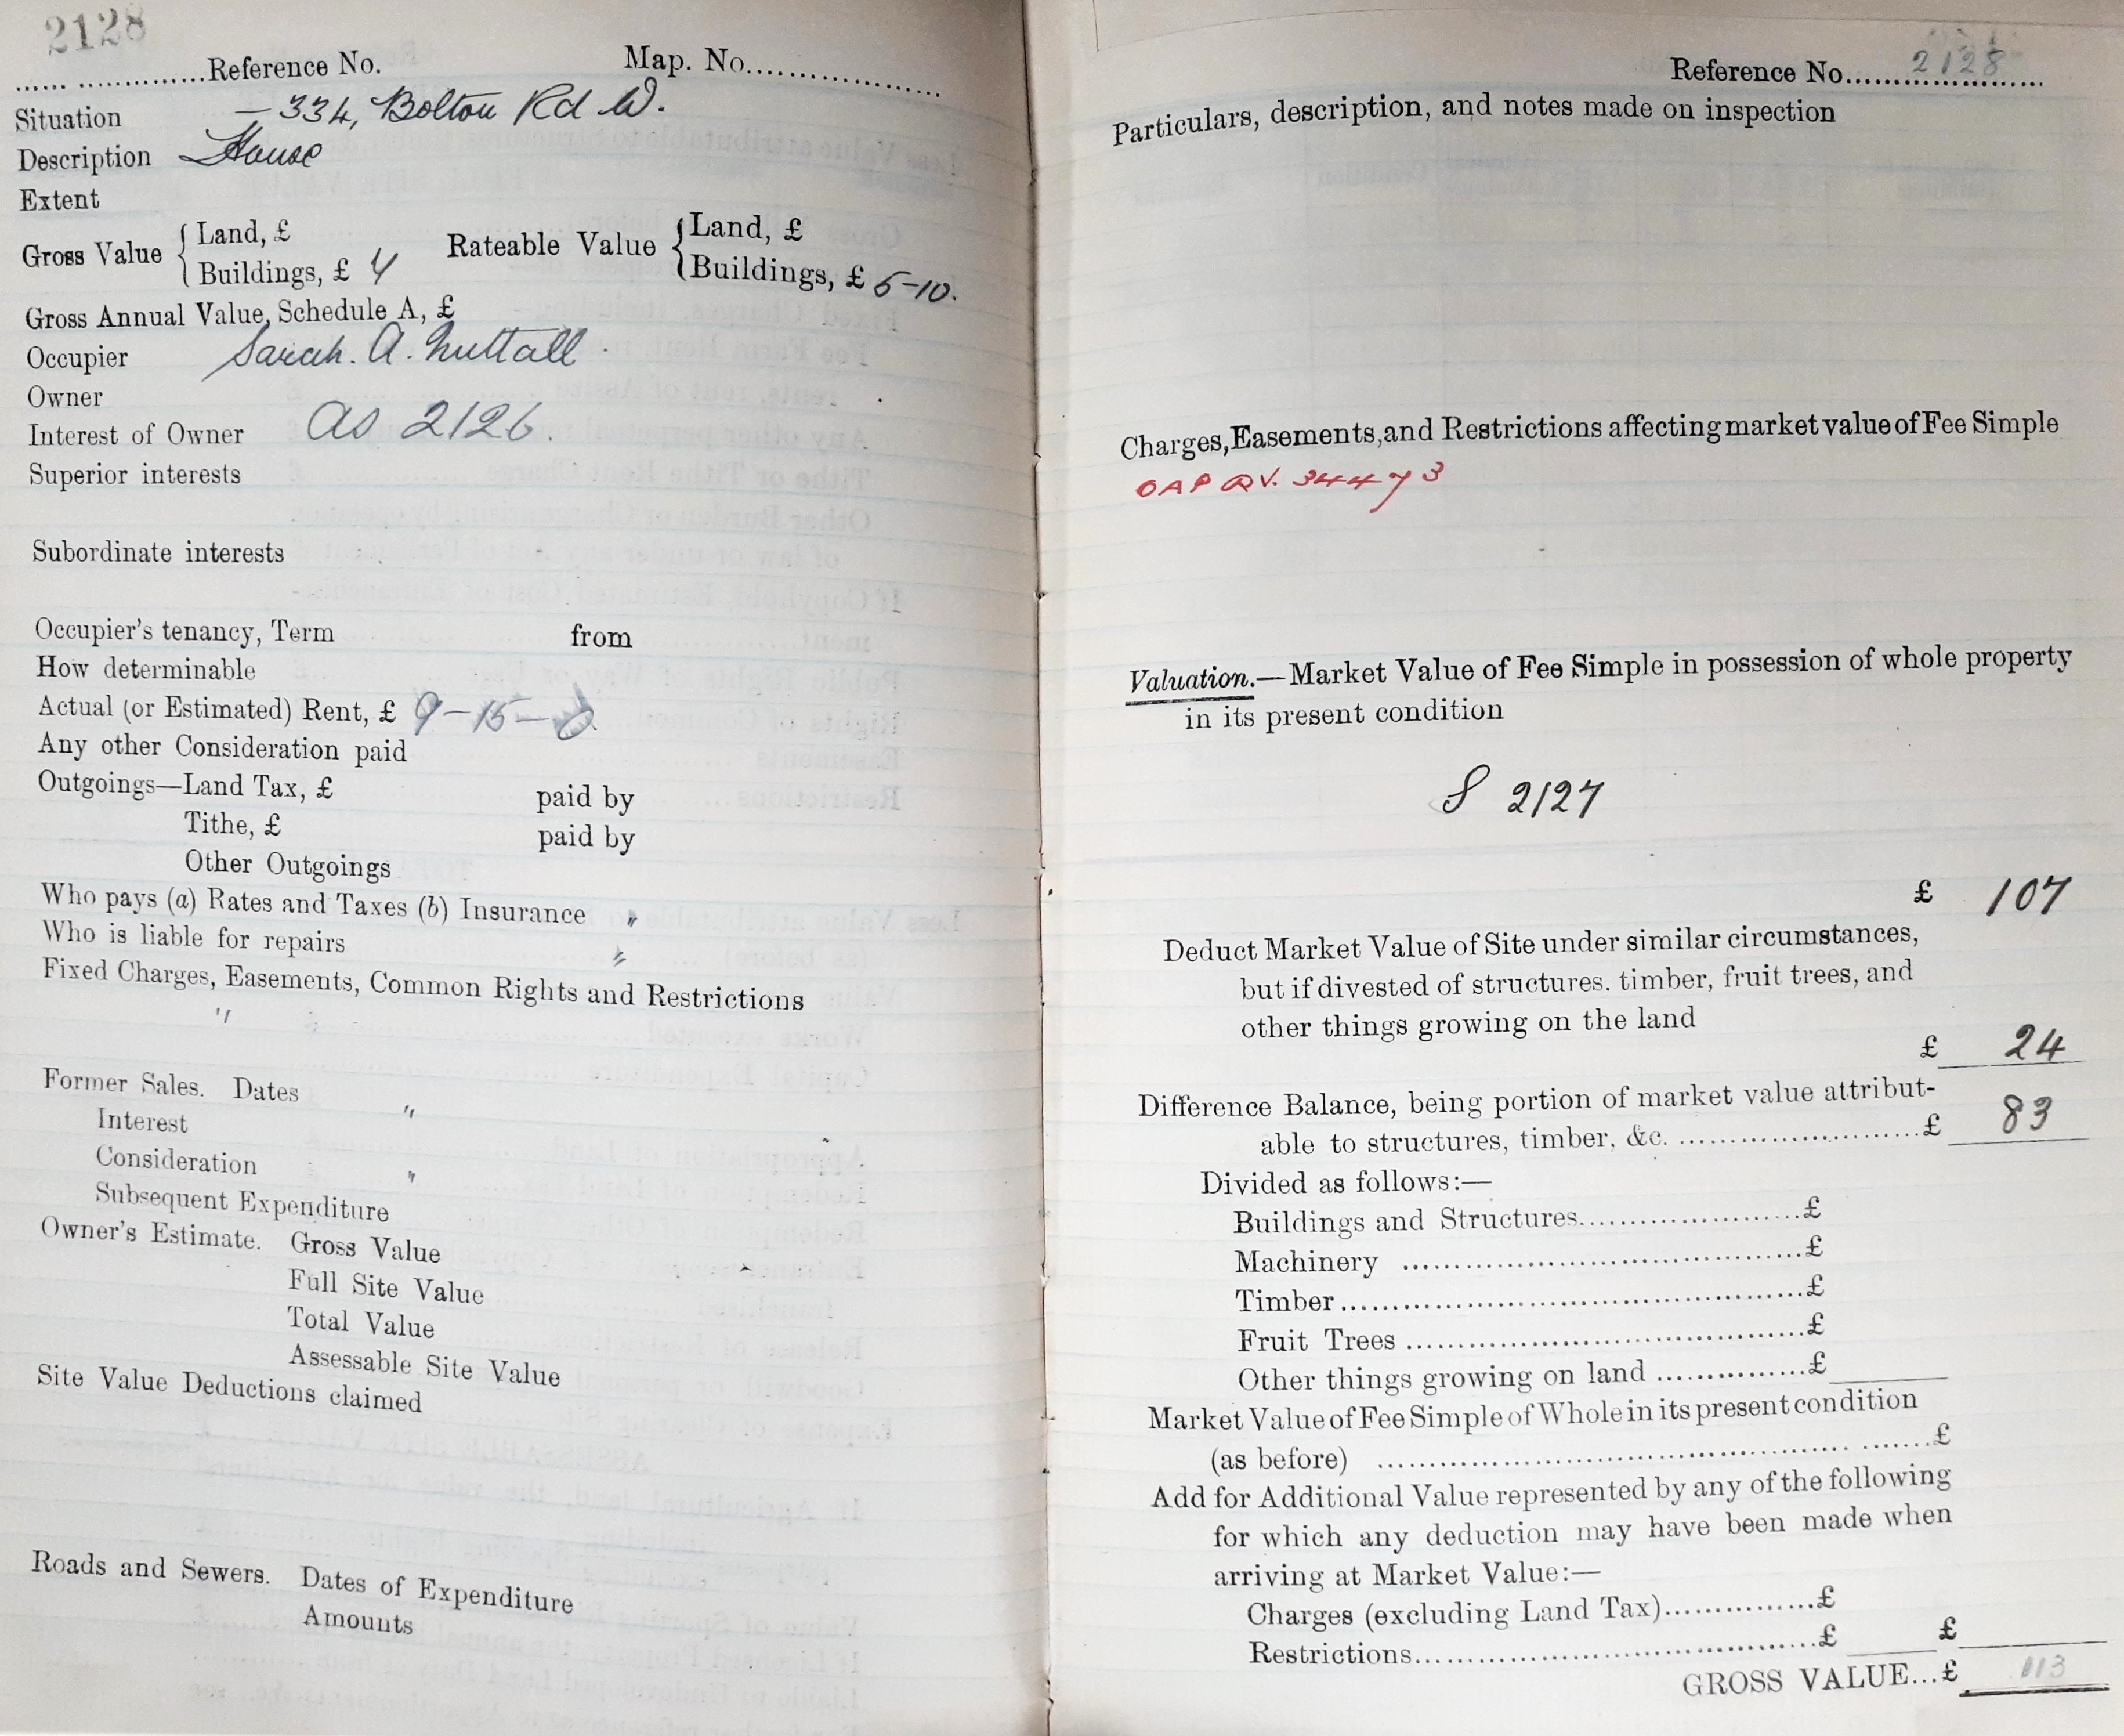 2128
Reference No. Map. No.
Situation – 334, Bolton Rd W.
Description House
Extent
Gross Value { Land, £ Rateable Value { Land, £
Buildings, £ Buildings, £ 5-10.
Gross Annual Value, Schedule A, £
Occupier Sarah. A. Nuttall
Owner
Interest of Owner as 2126.
Superior interests
Subordinate interests
Occupier's tenancy, Term from
How determinable
Actual (or Estimated) Rent, £ 9-15-
Any other Consideration paid
Outgoings—Land Tax, £ paid by
Tithe, £ paid by
Other Outgoings
Who pays (a) Rates and Taxes (b) Insurance "
Who is liable for repairs "
Fixed Charges, Easements, Common Rights and Restrictions
"
Former Sales. Dates "
Interest
Consideration "
Subsequent Expenditure
Owner's Estimate. Gross Value
Full Site Value
Total Value
Assessable Site Value
Site Value Deductions claimed
Roads and Sewers. Dates of Expenditure
Amounts
Reference No. 2128
Particulars, description, and notes made on inspection
Charges, Easements, and Restrictions affecting market value of Fee Simple
OAP RV. 344 y 3
Valuation.—Market Value of Fee Simple in possession of whole property
in its present condition
S 2127
£ 107
Deduct Market Value of Site under similar circumstances,
but if divested of structures. timber, fruit trees, and
other things growing on the land
£ 24
Difference Balance, being portion of market value attribut-
able to structures, timber, &c. £ 83
Divided as follows:—
Buildings and Structures £
Machinery £
Timber £
Fruit Trees £
Other things growing on land £
Market Value of Fee Simple of Whole in its present condition
(as before) £
Add for Additional Value represented by any of the following
for which any deduction may have been made when
arriving at Market Value:—
Charges (excluding Land Tax) £
Restrictions £ £
GROSS VALUE...£ 113